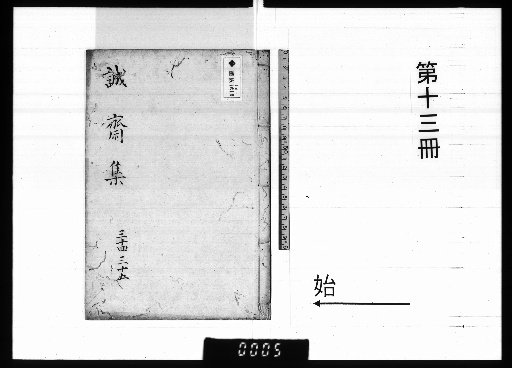 第十三冊
始
誠齋集
三十四 三十五
0005